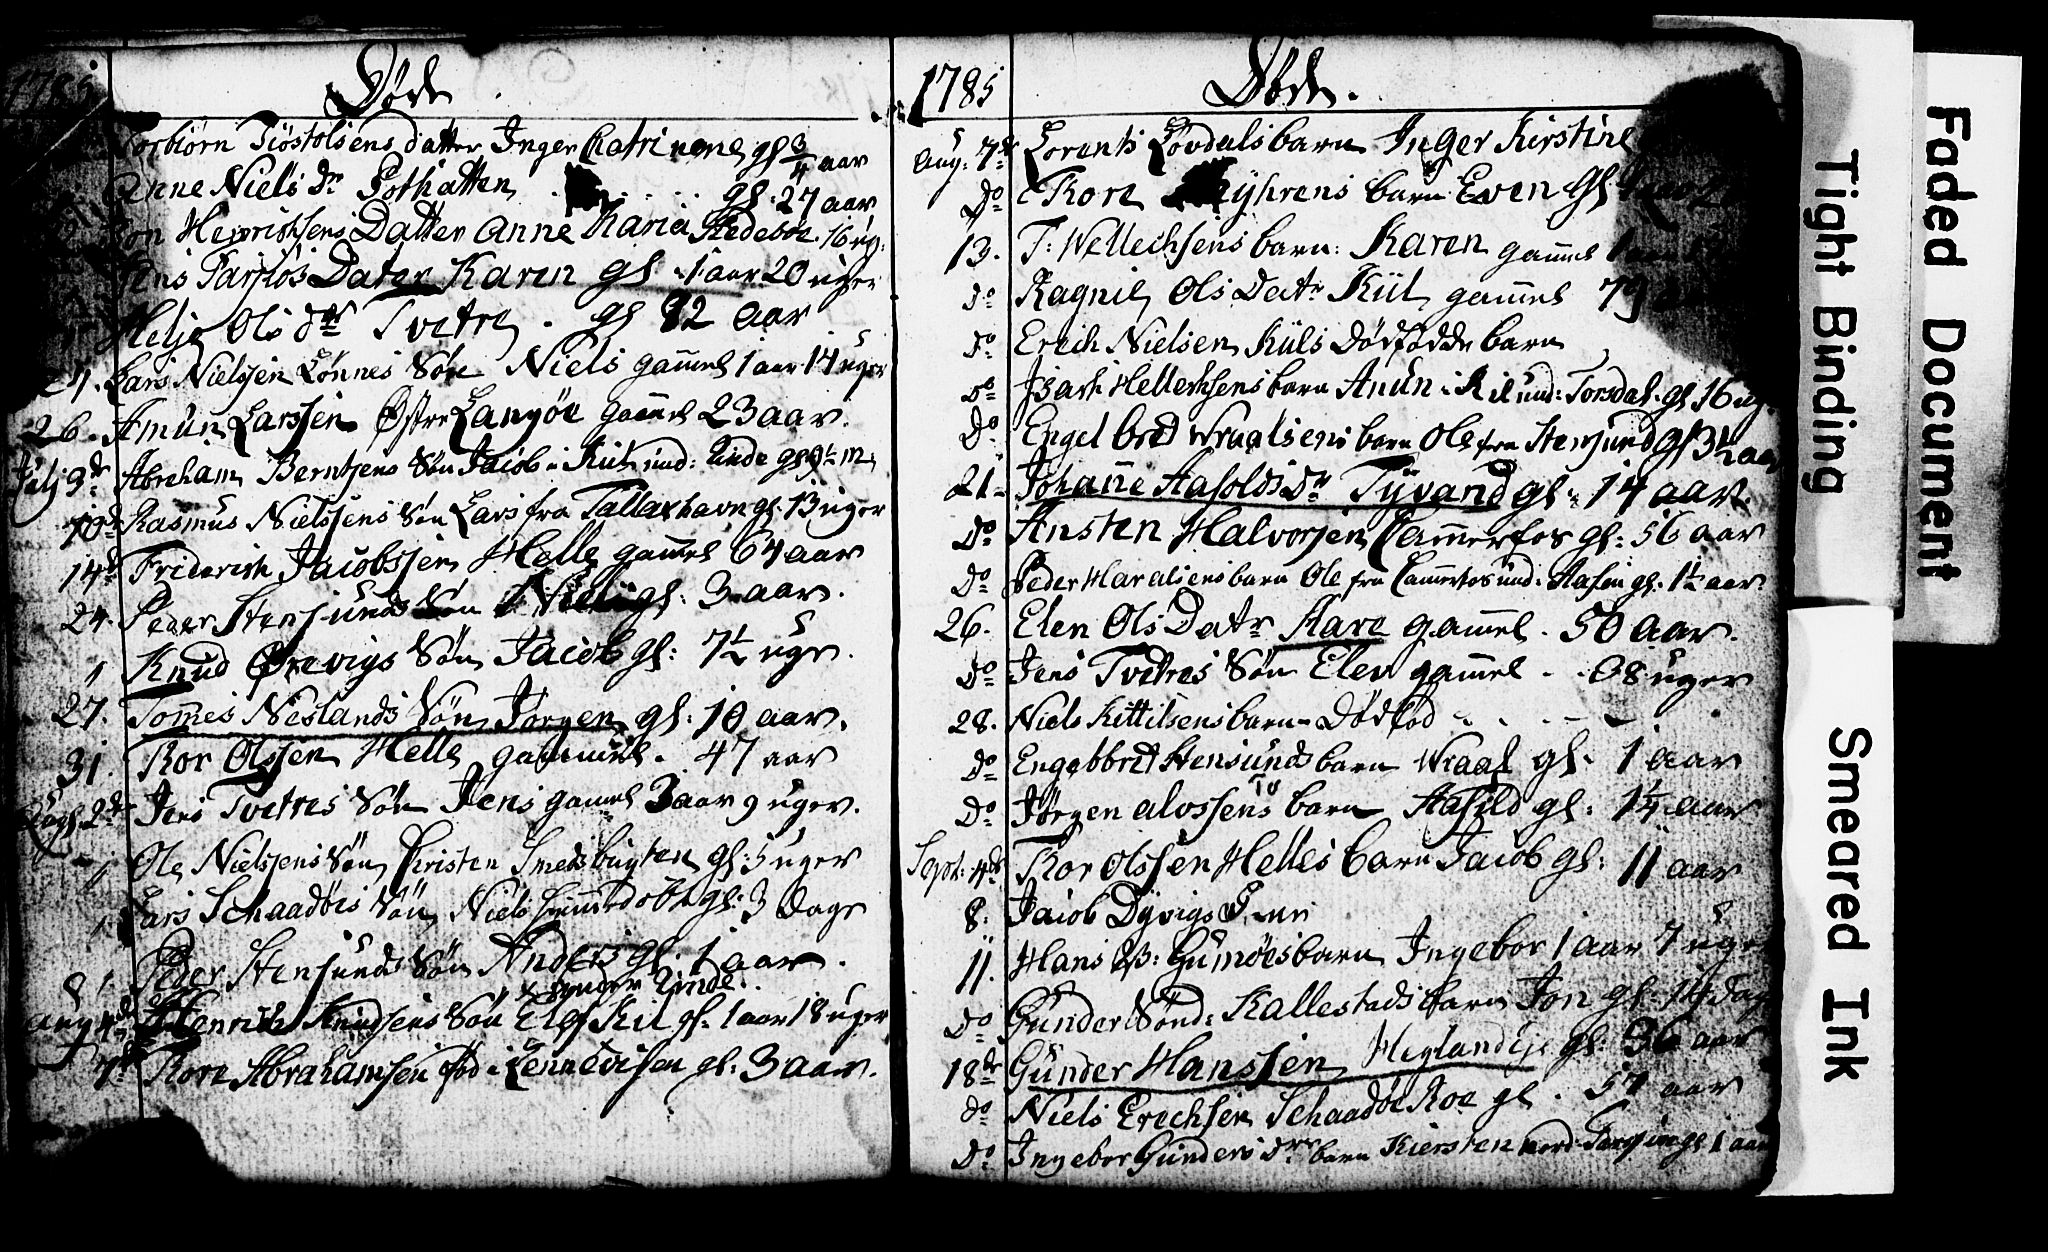 1785 Døde
Torbiørn Tiöstolsens datter Inger Catrinene gl 3/4 aar
Anne Niels Dr Pothatten gl. 27 aar
Jon Henrichsens Datter Anne Maria Stedeböe 16 ug:
Jens Dater Karen gl. 1 aar 20 uger
Helje Ols dr Tvetre gl 82 aar
Lars Nielssen Lönnes Søn Niels gam̄el 1 aar 14 uger
26. Amun Larssen Østre Langöe gam̄el 23 aar.
Julj 3d Abraham Berntsens Søn Jacob i Kiil und: Linde gl 9½ m
10de Rasmus Nielssens Søn Lars fra Tallaxhavn gl. 13 uger
14d Friderich Jacobssen Helle gam̄el 64 aar
24. Peder Stensunds Søn Niels gl: 3 aar.
Knud Ørevigs Søn Jacob gl: 7½ uge.
27. Tom̄es Neslands Søn Jørgen gl: 10 aar.
31. Roe Olssen Helle gammel. 47 aar
Augl. 2de Jens Tvetres Søn Jens gam̄el 3 aar 9 uger.
Ole Nielssens Søn Kristen Smedsbugten gl: 5 uger
Lars Schaadöis Søn Niels gl: 3 Dage
Peder Stensunds Søn Anders gl. 1 aar.
under Linde
aug 4de Henrich Knudsens Søn Elef Kiil gl: 1 aar 18 uger
7d Rore Abrahamsen fød i gl: 3 aar.
1785 Døde.
Aug: 7de Lorents Løvdals barn Inger Kirstine
Do Tore Myhrens barn Even Gl
13. T: Wellechsens barn: Karen gam̄el 1 aar
Do Ragnil Ols Datr Kiil gam̄el 79
Do Erich Nielsen Kiils Dødfødde barn
Do Isach Hellerhsens barn Anun i Kil und: Torsdal. gl 16 ug.
Do Engelbred Wraalsens barn Ole fra Stensund gl 3½ aar
21. Johan̄e Aasolds Dr Tyvand gl. 14 aar.
Do Ansten Halvorsen Cam̄erfos gl: 56 aar
Do Peder Haralsens barn Ole fra Cam̄erfos und: Aasen gl. 1½ aar.
26. Elen Ols Datr Aare gam̄el. 50 aar.
Do Jens Tvetres Søn Elev gam̄el . . 08 uger
28. Niels Kittilsens barn Dødfød
Do Engebbret Stensunds barn Wraal gl. 1 aar
Do Jørgen alossens barn Aasild gl: 1¼ aar
Septr: 4de Roe Olssen Helles barn Jacob gl: 11 aar
8. Jacob Dyvigs
11. Hans Gumöes barn Ingebor 1 aar 7 uger
Do Gunder Sønd: Kallestads barn Jon gl: 14 dag
18de Gunder Hanssen Heglandsje gl: 36 aar
Do Niels Erechsen Schaadöe Roe gl. 57 aar
Do Ingebor Gunders Drs barn Kiersten nord gl 1 aar
Faded Document
Tight Binding
Smeared Ink